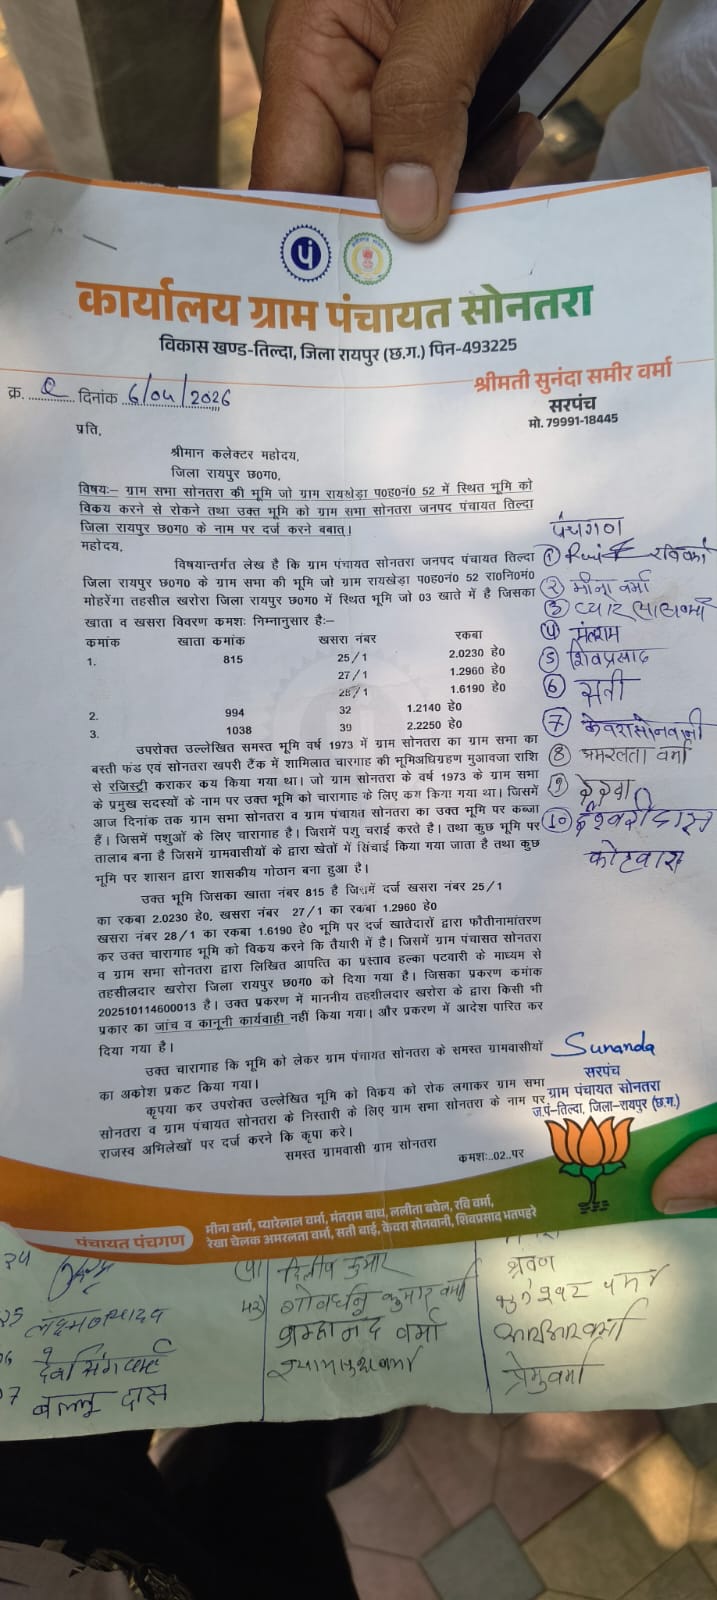 पं
कार्यालय ग्राम पंचायत सोनतरा
विकास खण्ड-तिल्दा, जिला रायपुर (छ.ग.) पिन-493225
श्रीमती सुनंदा समीर वर्मा
सरपंच
मो. 79991-18445
क्र. दिनांक 6/04/2026
प्रति,
श्रीमान कलेक्टर महोदय,
जिला रायपुर छ0ग0,
विषयः– ग्राम सभा सोनतरा की भूमि जो ग्राम रायखेड़ा प0ह0नं0 52 में स्थित भूमि को
विकय करने से रोकने तथा उक्त भूमि को ग्राम सभा सोनतरा जनपद पंचायत तिल्दा
जिला रायपुर छ0ग0 के नाम पर दर्ज करने बबात्।
महोदय,
विषयान्तर्गत लेख है कि ग्राम पंचायत सोनतरा जनपद पंचायत तिल्दा
जिला रायपुर छ0ग0 के ग्राम सभा की भूमि जो ग्राम रायखेड़ा प0ह0नं0 52 रा0नि0मं0
मोहरेंगा तहसील खरोरा जिला रायपुर छ0ग0 में स्थित भूमि जो 03 खाते में है जिसका
खाता व खसरा विवरण कमशः निम्नानुसार है:–
कमांक खाता कमांक खसरा नंबर रकबा
1. 815 25/1 2.0230 हे0
27/1 1.2960 हे0
28/1 1.6190 हे0
2. 994 32 1.2140 हे0
3. 1038 39 2.2250 हे0
उपरोक्त उल्लेखित समस्त भूमि वर्ष 1973 में ग्राम सोनतरा का ग्राम सभा का
बस्ती फंड एवं सोनतरा खपरी टैंक में शामिलात चारगाह की भूमिअधिग्रहण मुआवजा राशि
से रजिस्ट्री कराकर कय किया गया था। जो ग्राम सोनतरा के वर्ष 1973 के ग्राम सभा
के प्रमुख सदस्यों के नाम पर उक्त भूमि को चारागाह के लिए कय किया गया था। जिसमें
आज दिनांक तक ग्राम सभा सोनतरा व ग्राम पंचायत सोनतरा का उक्त भूमि पर कब्जा
हैं। जिसमें पशुओं के लिए चारागाह है। जिसमें पशु चराई करते है। तथा कुछ भूमि पर
तालाब बना है जिसमें ग्रामवासीयों के द्वारा खेतों में सिंचाई किया गया जाता है तथा कुछ
भूमि पर शासन द्वारा शासकीय गोठान बना हुआ है।
उक्त भूमि जिसका खाता नंबर 815 है जिसमें दर्ज खसरा नंबर 25/1
का रकबा 2.0230 हे0, खसरा नंबर 27/1 का रकबा 1.2960 हे0
खसरा नंबर 28/1 का रकबा 1.6190 हे0 भूमि पर दर्ज खातेदारों द्वारा फौतीनामांतरण
कर उक्त चारागाह भूमि को विकय करने कि तैयारी में है। जिसमें ग्राम पंचासत सोनतरा
व ग्राम सभा सोनतरा द्वारा लिखित आपत्ति का प्रस्ताव हल्का पटवारी के माध्यम से
तहसीलदार खरोरा जिला रायपुर छ0ग0 को दिया गया है। जिसका प्रकरण कमांक
202510114600013 है। उक्त प्रकरण में माननीय तहशीलदार खरोरा के द्वारा किसी भी
प्रकार का जांच व कानूनी कार्यवाही नहीं किया गया। और प्रकरण में आदेश पारित कर
दिया गया है।
उक्त चारागाह कि भूमि को लेकर ग्राम पंचायत सोनतरा के समस्त ग्रामवासीयों
का अकोश प्रकट किया गया।
कृपया कर उपरोक्त उल्लेखित भूमि को विकय को रोक लगाकर ग्राम सभा
सोनतरा व ग्राम पंचायत सोनतरा के निस्तारी के लिए ग्राम सभा सोनतरा के नाम पर
राजस्व अभिलेखों पर दर्ज करने कि कृपा करे।
समस्त ग्रामवासी ग्राम सोनतरा
कमशः..02..पर
पंचगण
① रवि वर्मा
② मीना वर्मा
③ प्यारेलाल वर्मा
④ मंतराम
⑤ शिवप्रसाद
⑥ सती
⑦ केवरा सोनवानी
⑧ अमरलता वर्मा
⑨
⑩ ईश्वरीदास
कोटवार
Sunanda
सरपंच
ग्राम पंचायत सोनतरा
ज.पं–तिल्दा, जिला–रायपुर (छ.ग.)
पंचायत पंचगण
मीना वर्मा, प्यारेलाल वर्मा, मंतराम बाध, ललीता बघेल, रवि वर्मा,
रेखा चेलक अमरलता वर्मा, सती बाई, केवरा सोनवानी, शिवप्रसाद भतपहरे
दिलीप कुमार
श्रवण
गोवर्धन कुमार वर्मा
ब्रम्हानंद वर्मा
देवसिंग वर्मा
प्रेमु वर्मा
बल्लू दास